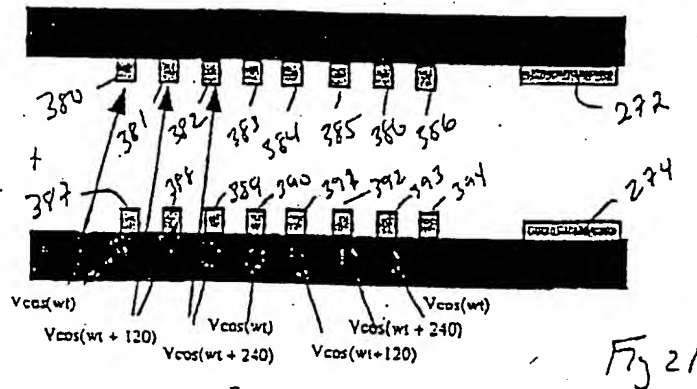 380 381 382 383 384 385 386 386 272
+
387 388 389 390 397 392 393 394 274
Vcos(wt) Vcos(wt + 120) Vcos(wt + 240) Vcos(wt) Vcos(wt+120) Vcos(wt + 240) Vcos(wt)
Fig 21